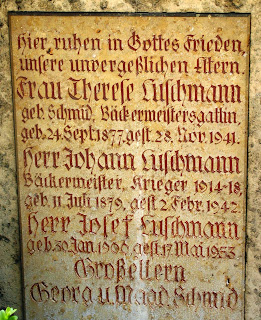 Hier ruhen in Gottes Frieden,
unsere unvergeßlichen Eltern
Frau Therese Luschmann
geb. Schmid, Bäckermeistersgattin,
geb. 24. Sept. 1877, gest. 28. Nov. 1941.
Herr Johann Luschmann
Bäckermeister, Krieger 1914-18,
geb. 11. Juli 1879, gest. 2. Febr. 1942.
Herr Josef Luschmann
geb. 30. Jan. 1906, gest. 17. Mai 1953
Großeltern
Georg u. Magd. Schmid